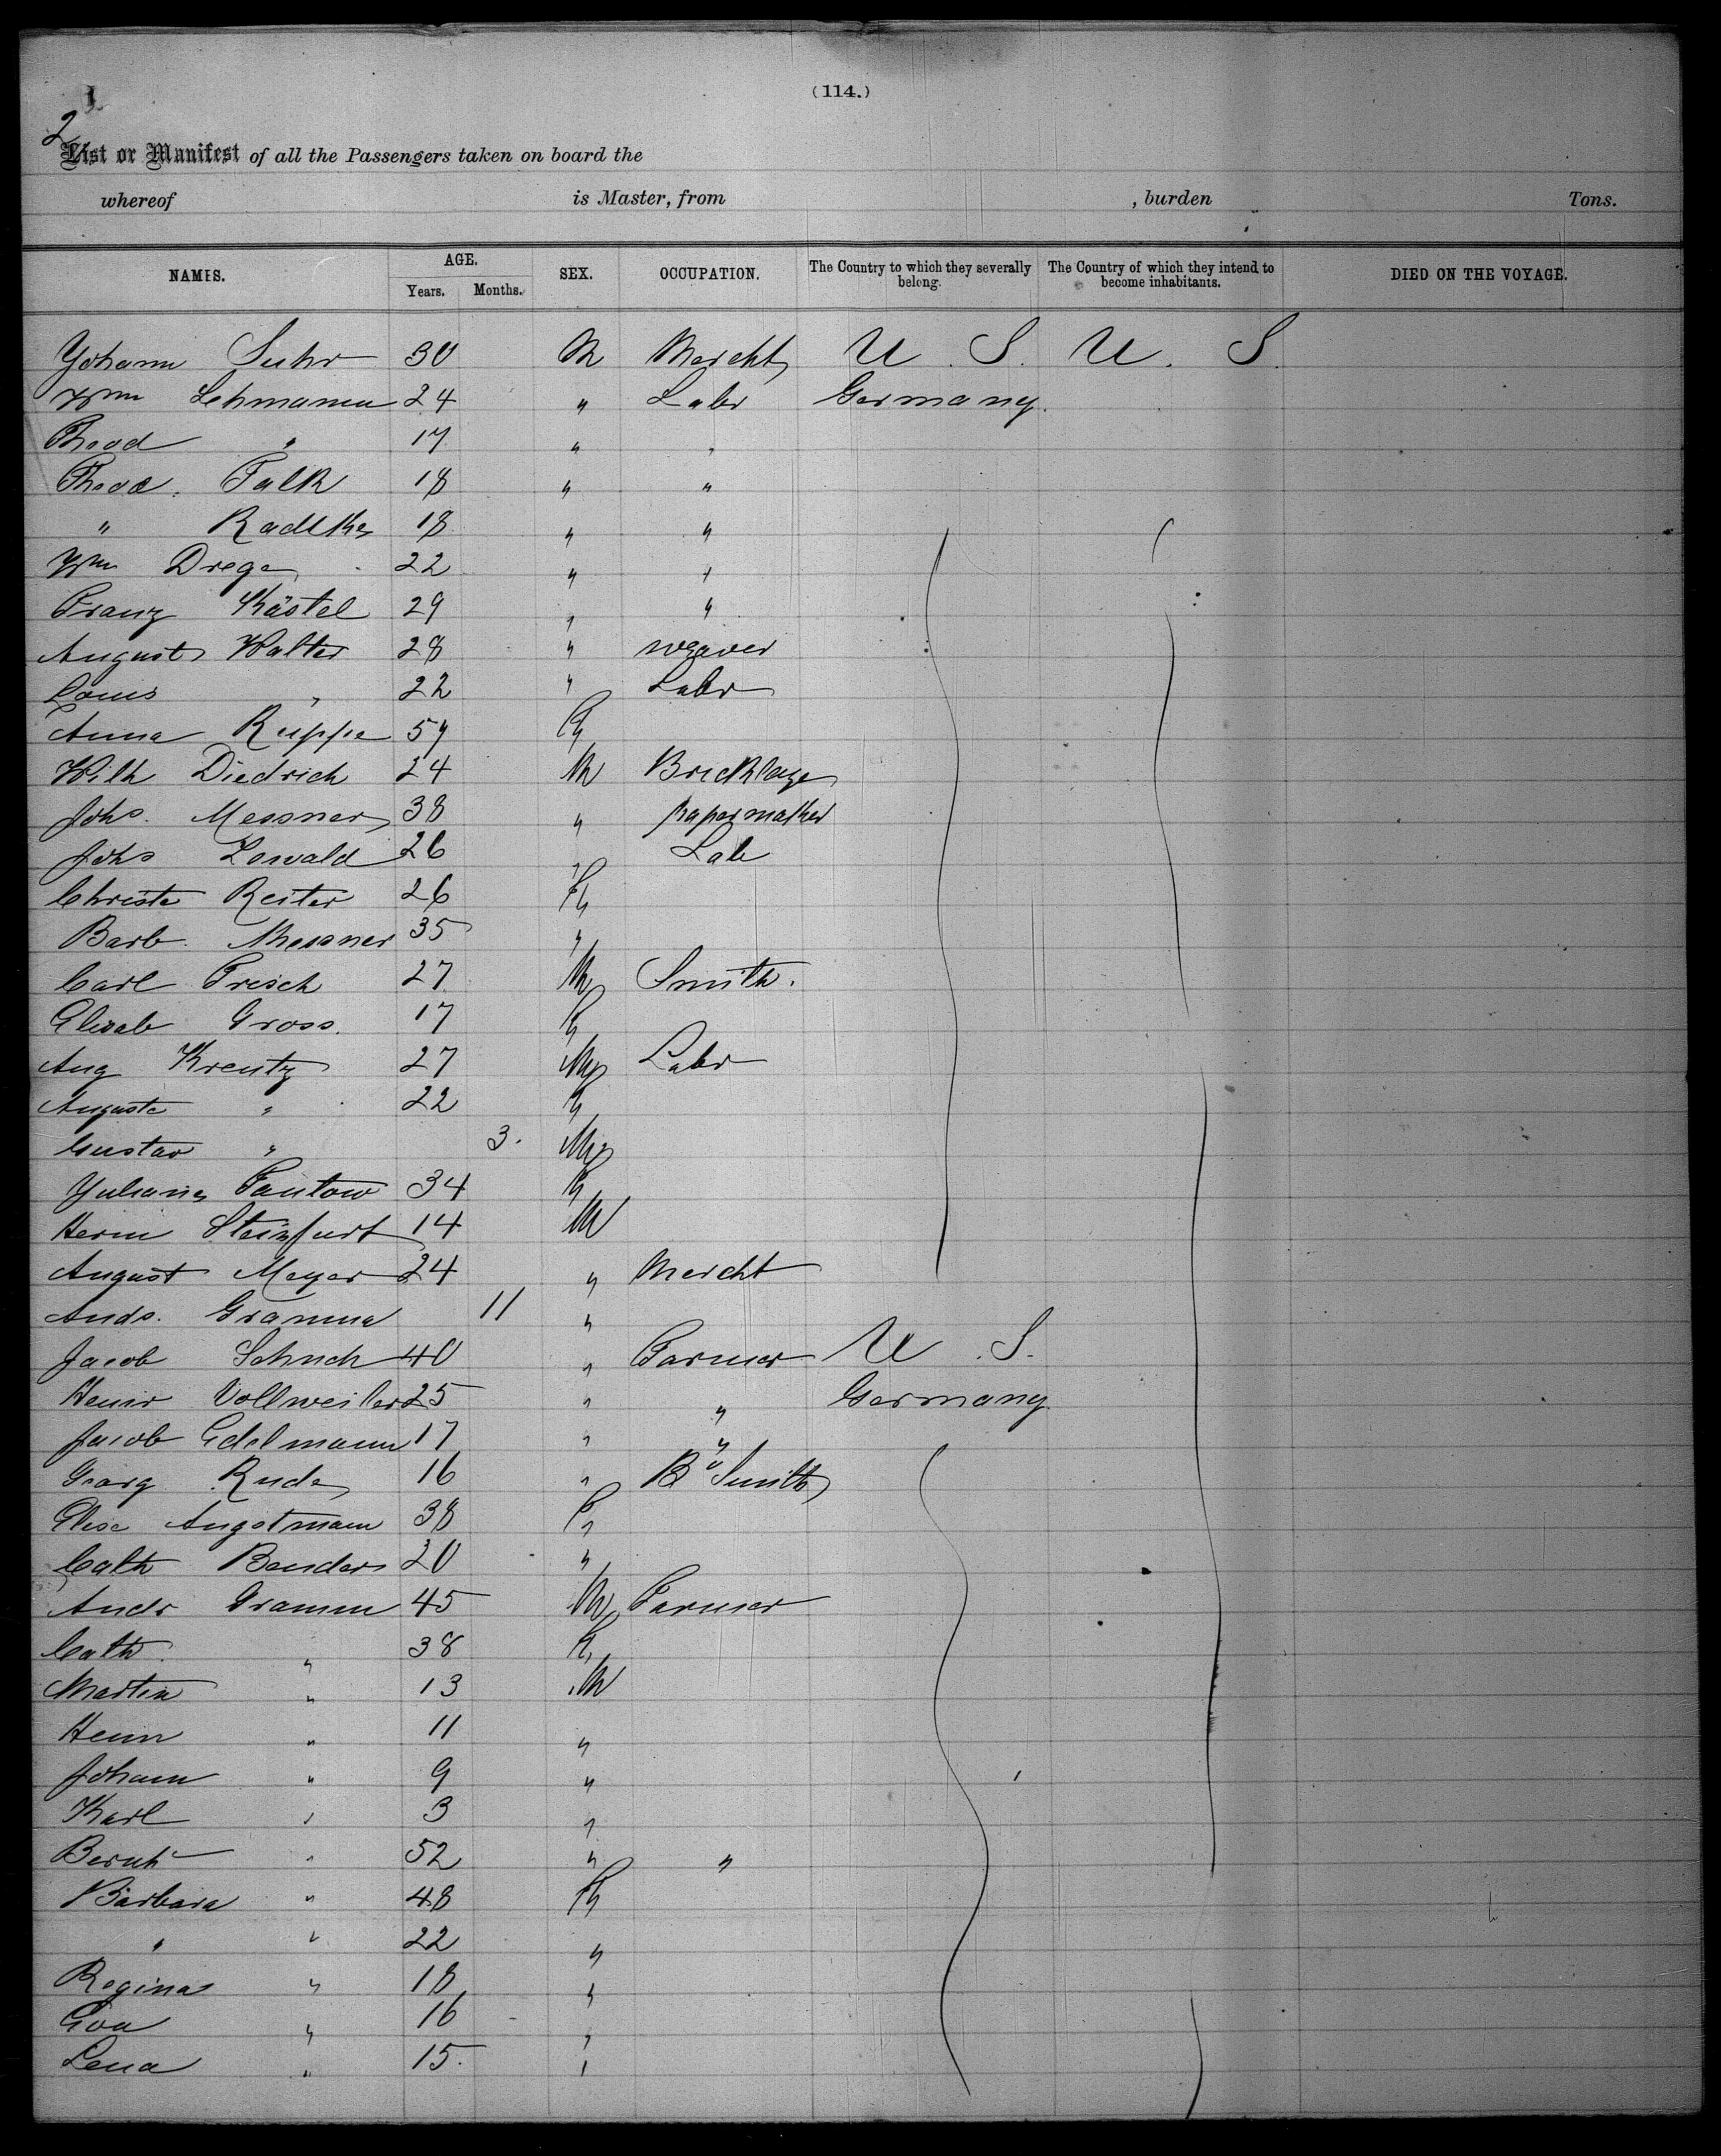 (114.)
2
List or Manifest of all the Passengers taken on board the
whereof is Master, from , burden Tons.
NAMES. AGE. Years. Months. SEX. OCCUPATION. The Country to which they severally belong. The Country of which they intend to become inhabitants. DIED ON THE VOYAGE.
Johann Suhr 30 M Mercht U. S. U. S.
Wm Lehmann 24 " Labr Germany
Theod " 17 " "
Theod. Falk 18 " "
" Radtke 18 " "
Wm Drege 22 " "
Franz Kästel 29 " "
August Walter 28 " weaver
Louis " 22 " Labr
Anna Ruppe 59 F
Wilh Diedrich 24 M Bricklayer
Johs. Messner 38 " papermaker
Johs Lewald 26 " Lab
Christe Reiter 26 F
Barb. Messner 35 "
Carl Frisch 27 M Smith.
Elisab Gross. 17 F
Aug Kreutz 27 M Labr
Auguste " 22 F
Gustav " 3. M
Juliane Pantow 34 F
Herm Steinfurt 14 M
August Meyer 24 " Mercht
Ands. Gramm 11 "
Jacob Schuch 40 " Farmer U. S.
Henir Vollweiler 25 " " Germany
Jacob Edelmann 17 " "
Georg Rude 16 " B" Smith
Elise Angstmann 38 F
Cath Bender 20 "
Andr Gramm 45 M Farmer
Cath. " 38 F
Martin " 13 M
Henn " 11 "
Johann " 9 "
Karl " 3 "
Bernh " 52 " "
Barbara " 48 F
" " 22 "
Regina " 18 "
Eva " 16 "
Lena " 15. "